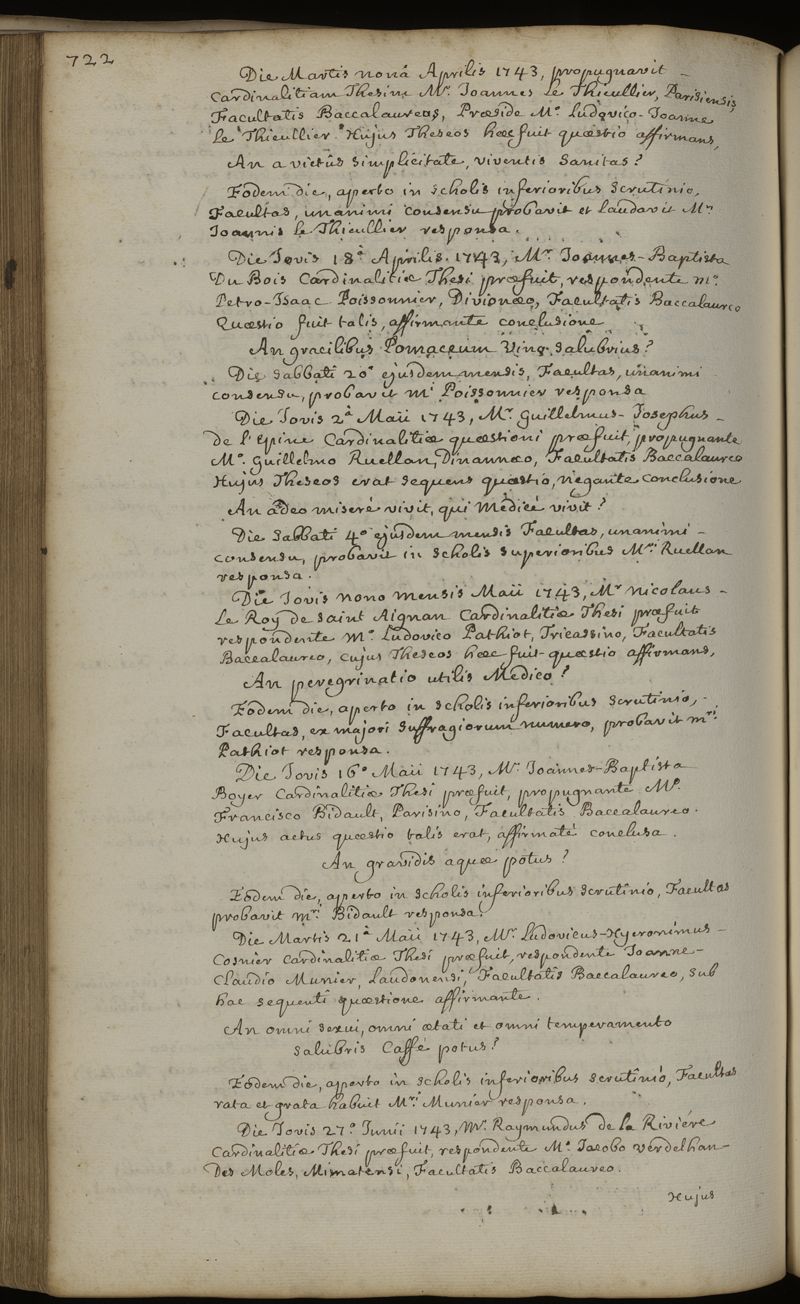 722
Die Martis nonâ Aprilis 1743, propugnavit -
Cardinalitiam Thesim Mr. Joannes Le Thieullier, Parisiensis,
Facultatis Baccalaureus, Præside Mo. Ludovico-Joanne
Le Thieullier. Hujus Theseos hæc fuit quæstio affirmans,
An a victûs simplicitate, viventis Sanitas?
Eodem die, aperto in scholis inferioribus scrutinio,
Facultas, unanimi consensu probavit et laudavit Mri
Joannis le Thieullier responsa.
Die Jovis 18â Aprilis 1743, Mr. Joannes-Baptista
Du Bois Cardinalitiæ Thesi præfuit, respondente mo.
Petro-Isaac Poissonnier, Divionæo, Facultatis Baccalaureo
Quæstio fuit talis, affirmante conclusione
An gracilibus Pomaceum Vino salubrius?
Die Sabbati 20a ejusdem mensis, Facultas, unanimi
consensu, probavit mri Poissonnier responsa
Die Jovis 2â Maii 1743, Mr. Guillelmus-Josephus -
de l'Epine Cardinalitiæ quæstioni præfuit, propugnante
Mo. Guillelmo Ruellan, Dinannæo, Facultatis Baccalaureo
Hujus Theseos erat sequens quæstio, negante conclusione
An adeo miserè vivit, qui Medicè vivit?
Die Sabbati 4o ejusdem mensis Facultas, unanimi -
consensu, probavit in scholis superioribus Mri Ruellan
responsa.
Die Jovis nono mensis Maii 1743, Mr Nicolaus -
Le Roy de Saint Aignan Cardinalitiæ Thesi præfuit
respondente Mo. Ludovico Pathiot, Tricassino, Facultatis
Baccalaureo, cujus Theseos hæc fuit quæstio affirmans,
An peregrinatio utilis Medico?
Eodem die, aperto in scholis inferioribus scrutinio, -
Facultas, ex majori suffragiorum numero, probavit mri
Pathiot responsa.
Die Jovis 16o Maii 1743, Mr. Joannes-Baptista
Boyer Cardinalitiæ Thesi præfuit, propugnante Mo.
Francisco Bidault, Parisino, Facultatis Baccalaureo.
Hujus actus quæstio talis erat, affirmatè conclusa.
An gravidis aquæ potus?
Eodem die, aperto in scholis inferioribus scrutinio, Facultas
probavit mri Bidault responsa.
Die Martis 21â Maii 1743, Mr. Ludovicus-Hyeronimus -
Cosnier Cardinalitiæ Thesi præfuit, respondente Joanne-
Claudio Munier, Laudonensi, Facultatis Baccalaureo, sub
hac sequenti quæstione affirmante.
An omni sexui, omni ætati et omni temperamento
salubris Caffé potus?
Eodem die, aperto in scholis inferioribus scrutinio, Facultas
rata et grata habuit Mri Munier responsa.
Die Jovis 27o. Junii 1743, Mr. Raymundus de la Riviére
Cardinalitiæ Thesi præfuit, respondente Mo. Jacobo Verdelhan-
Des Moles, Mimatensi, Facultatis Baccalaureo.
Hujus